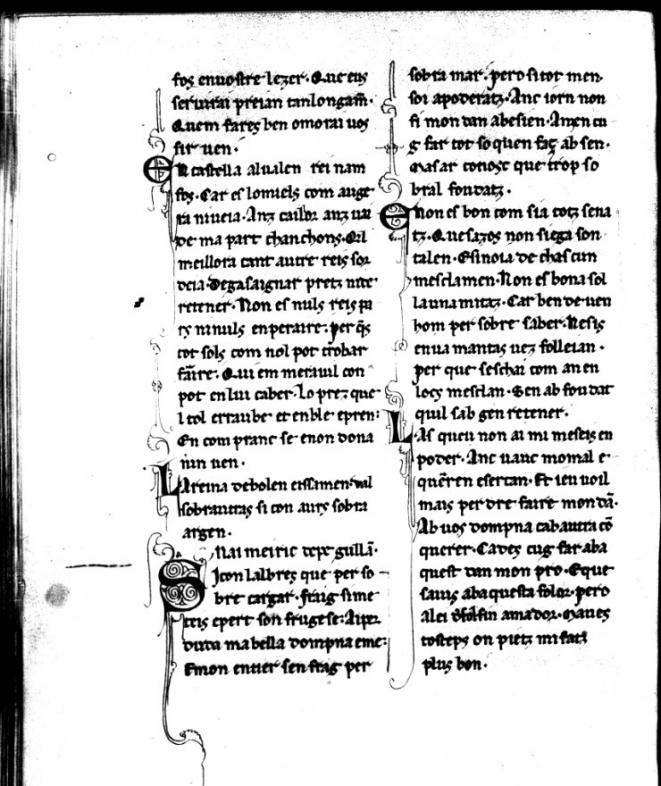 fos enuostre lezer. Que eus
seruirai preian tan longam̃.
Quem fares ben omorai uos
ser uen.
En castella al ualen rei nam
fos. Car es lo miels com auge
ra ni ueia. Anz cailor anz uai
de ma part chanchons. Qil
meillora cant autre reis sor
deia. Degasaignar pretz nite
retener. Non es nuls reis pa
rs ni nuls enperaire. per q̃s
tot sols com nol pot trobar
faire. Qui em merauil con
pot en lui caber. Lo prez que
l tol erraube et enble epren:
En com pranc se enon dona
uen.
La reina debolen eissamen ual
sobrautras si con aurs sobra
argen.
Nai meiric de gullã.
Sicon lalbres que per so
bre cargar. fraig si me
teis epert son frug e se. Ai per
duda ma bella dompna e me:
Emon entier sen frag per
sobra mar. pero si tot men
soi apoderatz. Anc iorn non
fi mon dan abesien. Anzen cu
g far tot so quen faç ab sen.
Mas ar conosc que trop so
bral foudatz.
E non es bon com sia totz sena
tz. Que sazos non siega son
talen. Esinoia de chascun
mesclamen. Non es bona sol
la una mitatz. Car ben deuen
hom per sobre saber. Nesis
enua mantas uez folleian.
per que seschai com an en
locs mesclan. Sen ab foudat
quil sab gen retener.
Las queu non ai mi meseis en
poder. Anc uauc mo mal e
querren esercan. Et ieu uoil
mais perdre e faire mon dã.
Ab uos dompna cab autra cõ
querer. Cades cug far aba
quest dan mon pro. Eque
sauis ab aquesta folor. pero
a lei de fol fin amador. Maues
tostemps on pietz mi fatz
plus bon.